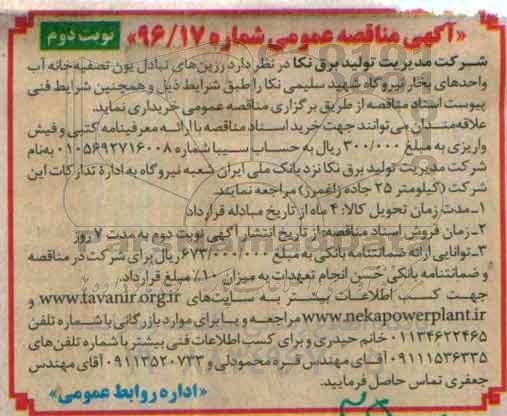 «آگهی مناقصه عمومی شماره ۹۶/۱۷» نوبت دوم
شرکت مدیریت تولید برق نکا در نظر دارد رزین‌های تبادل یون تصفیه‌خانه آب
واحدهای بخار نیروگاه شهید سلیمی نکا را طبق شرایط ذیل و همچنین شرایط فنی
پیوست اسناد مناقصه از طریق برگزاری مناقصه عمومی خریداری نماید.
علاقه‌مندان می‌توانند جهت خرید اسناد مناقصه با ارائه معرفینامه کتبی و فیش
واریزی به مبلغ ۳۰۰/۰۰۰ ریال به حساب سیبا شماره ۰۱۰۵۶۹۲۷۱۶۰۰۸ به‌نام
شرکت مدیریت تولید برق نکا نزد بانک ملی ایران شعبه نیروگاه به ادارهٔ تدارکات این
شرکت (کیلومتر ۲۵ جاده زاغمرز) مراجعه نمایند.
۱-مدت زمان تحویل کالا: ۴ ماه از تاریخ مبادله قرارداد
۲-زمان فروش اسناد مناقصه: از تاریخ انتشار آگهی نوبت دوم به مدت ۷ روز
۳-توانایی ارائه ضمانتنامه بانکی به مبلغ ۶۷۳/۰۰۰/۰۰۰ ریال برای شرکت در مناقصه
و ضمانتنامه بانکی حُسن انجام تعهدات به میزان ۱۰٪ مبلغ قرارداد.
جهت کسب اطلاعات بیشتر به سایت‌های www.tavanir.org.ir و
www.nekapowerplant.ir مراجعه و یا برای موارد بازرگانی با شماره تلفن
۰۱۱۳۴۶۲۲۴۶۵ خانم حیدری و برای کسب اطلاعات فنی بیشتر با شماره تلفن‌های
۰۹۱۱۱۵۳۶۳۳۵ آقای مهندس قره محمودلی و ۰۹۱۱۳۵۲۰۷۳۳ آقای مهندس
جعفری تماس حاصل فرمایید.
«اداره روابط عمومی»